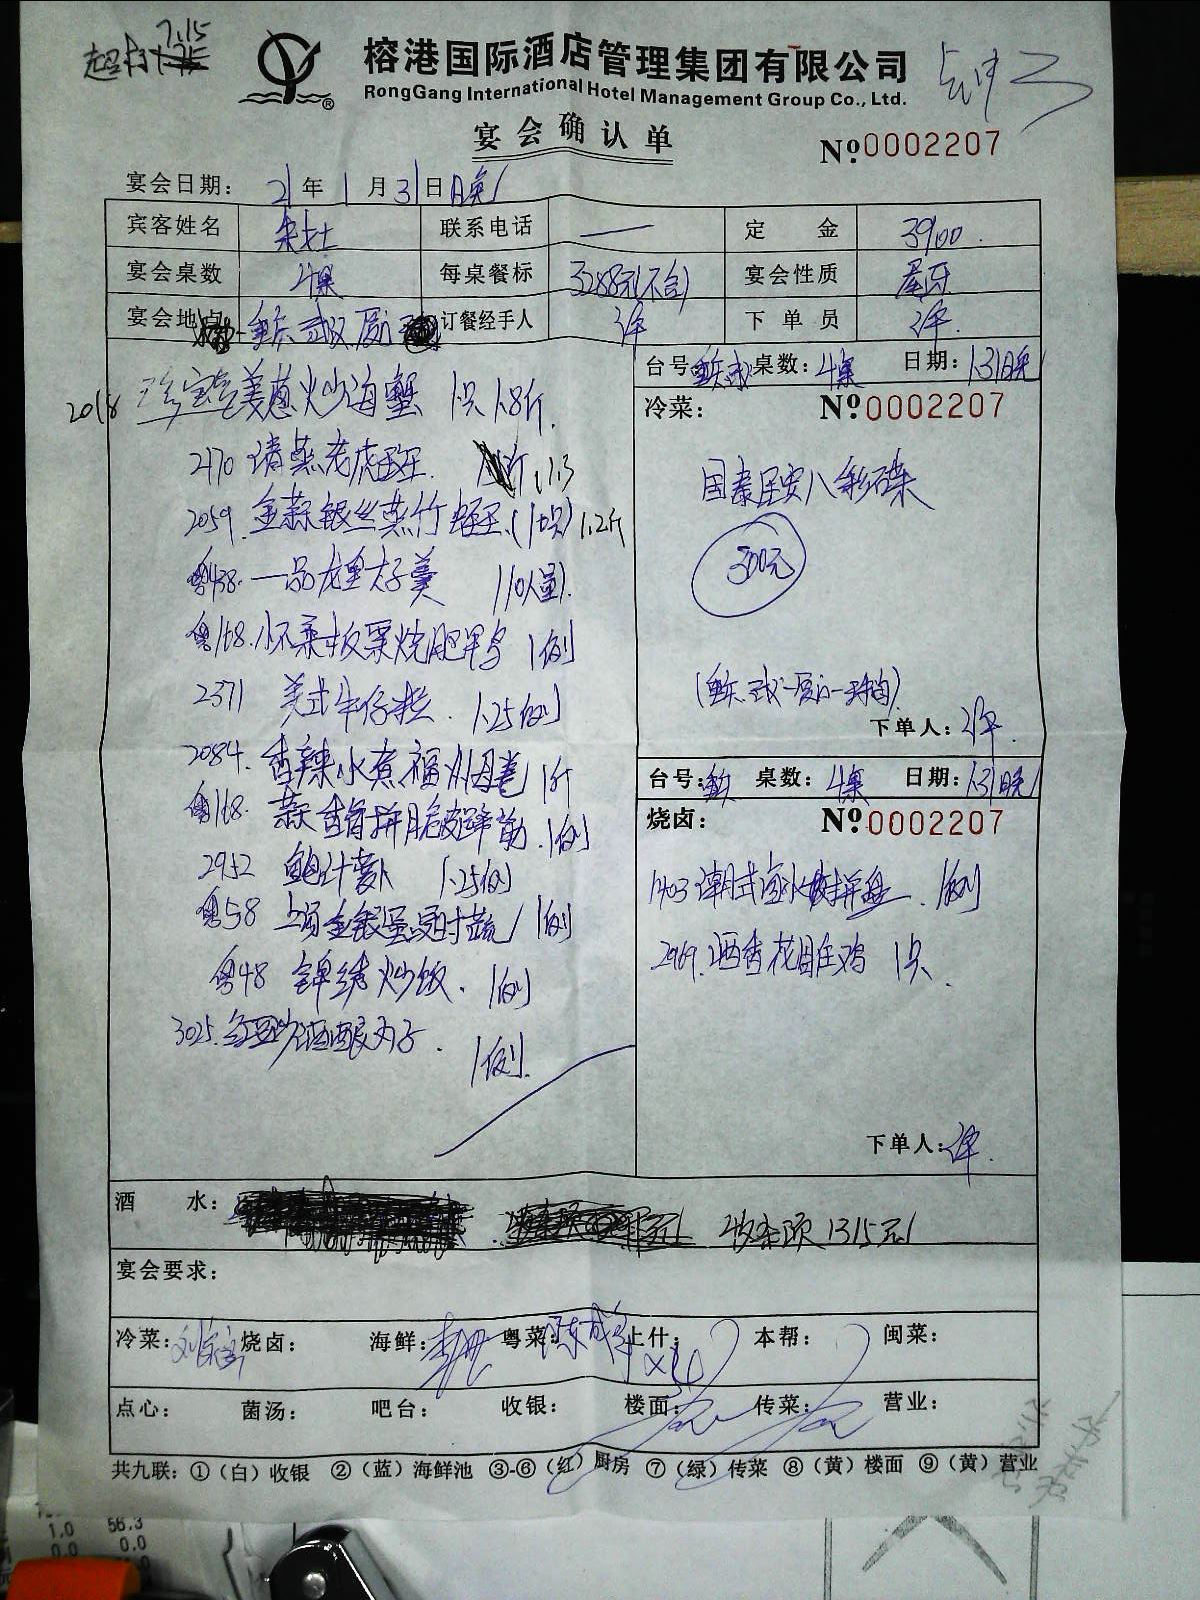 7.15
榕港国际酒店管理集团有限公司
RongGang International Hotel Management Group Co., Ltd.
®
宴会确认单
No 0002207
宴会日期: 21年1月31日晚
宾客姓名 联系电话 — 定金 3900.
宴会桌数 4桌 每桌餐标 3288元(不含) 宴会性质 尾牙
宴会地点 订餐经手人 下单员
台号: 桌数: 4桌 日期: 1.31晚
2018 葱炒海蟹 1只 1.8斤.
冷菜: No 0002207
2170 清蒸老虎斑. 1.3
国泰民安八彩碟
2059. 金蒜银丝蒸竹蛏王. 1.2斤
300元
粤438. 一品太子羹 10人量).
粤168. 怀柔板栗烧肥甲鱼 1例
2371 美式牛仔粒. 1.25例
下单人:
2084. 香辣水煮福州 1斤
台号: 桌数: 4桌 日期: 1.31晚
粤168. 蒜香骨拼脆皮蹄筋. 1例
烧卤: No 0002207
2952 鲍汁萝卜 1.25例
1403 潮式卤水拼盘. 1例
粤58 上汤金银蛋浸时蔬 1例
2969. 酒香花雕鸡 1只.
粤48 锦绣炒饭. 1例
3025. 红豆沙酒酿丸子. 1例.
下单人:
酒水: 1315元
宴会要求:
冷菜: 烧卤: 海鲜: 粤菜: 上什: 本帮: 闽菜:
点心: 菌汤: 吧台: 收银: 楼面: 传菜: 营业:
共九联: ①(白)收银 ②(蓝)海鲜池 ③-⑥(红)厨房 ⑦(绿)传菜 ⑧(黄)楼面 ⑨(黄)营业
1.0 56.3
0.0 0.0